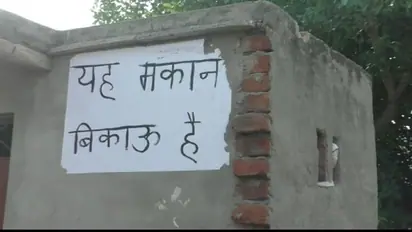 यह मकान
बिकाऊ है